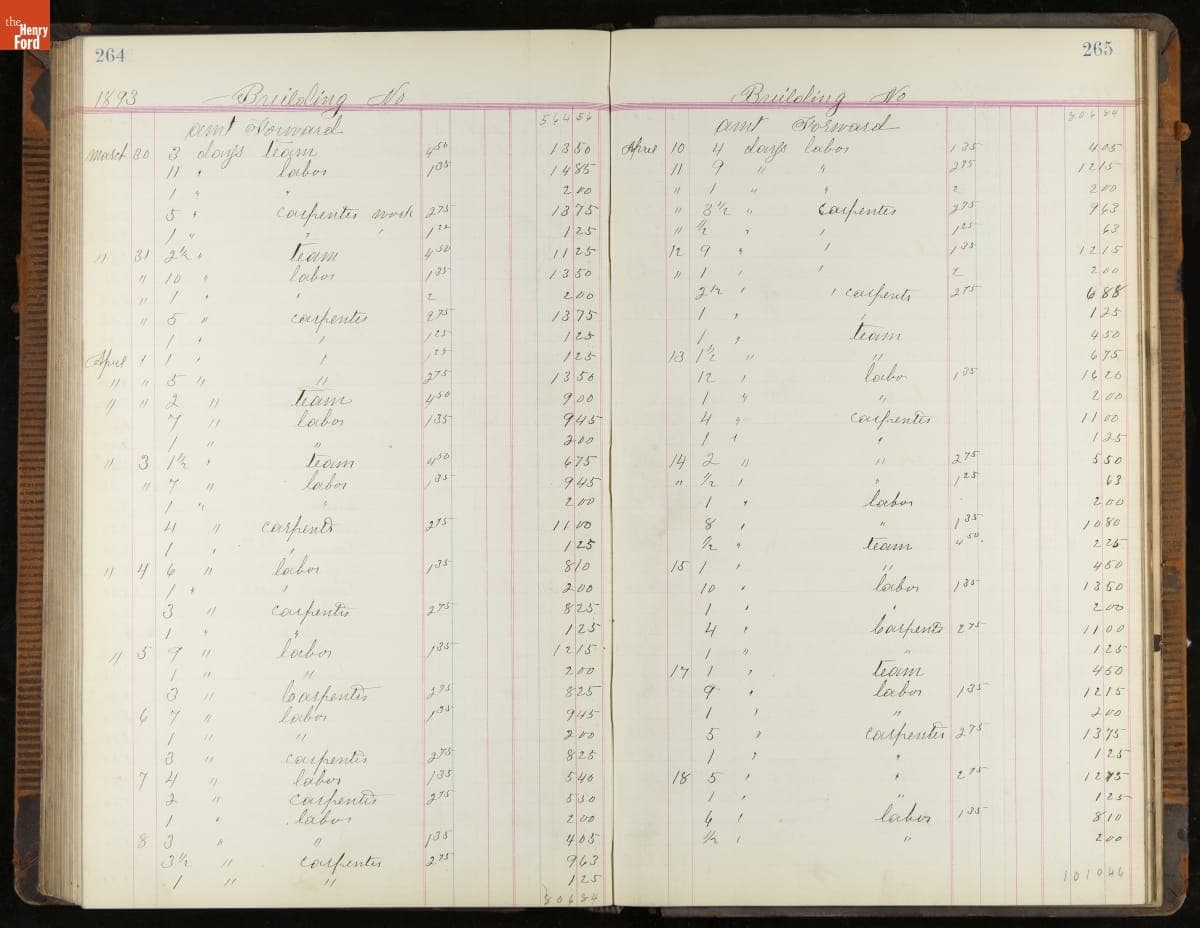 the Henry Ford
264
1893 Building No
564 56
amt Forward
March 30 3 days team 4 50 13 50
11 " labor 1 35 14 85
1 " " 2 00
5 " Carpenter work 2 75 13 75
1 " " " 1 25 1 25
" 31 2 1/2 " team 4 50 11 25
" 10 " labor 1 35 13 50
" 1 " " 2 2 00
" 5 " carpenter 2 75 13 75
1 " " 1 25 1 25
April 1 1 " " 1 25 1 25
" " 5 " " 2 75 13 50
" " 2 " team 4 50 9 00
7 " labor 1 35 9 45
1 " " 2 00
" 3 1 1/2 " team 4 50 6 75
" 7 " labor 1 35 9 45
1 " " 2 00
4 " carpenter 2 75 11 00
1 " " 1 25
" 4 6 " labor 1 35 8 10
1 " " 2 00
3 " carpenter 2 75 8 25
1 " " 1 25
" 5 9 " labor 1 35 12 15
1 " " 2 00
3 " Carpenter 2 75 8 25
6 7 " labor 1 35 9 45
1 " " 2 00
3 " carpenter 2 75 8 25
7 4 " labor 1 35 5 40
2 " carpenter 2 75 5 50
1 " labor 2 00
8 3 " " 1 35 4 05
3 1/2 " carpenter 2 75 9 63
1 " " 1 25
806 84
265
Building No
806 84
amt Forward
April 10 4 days labor 1 35 4 05
11 9 " " 2 95 12 15
" 1 " " 2 2 00
" 3 1/2 " Carpenter 2 75 9 63
" 1/2 " " 1 25 63
12 9 " " 1 35 12 15
" 1 " " 2 2 00
2 1/2 " " carpenter 2 75 6 88
1 " " 1 25
1 " team 4 50
13 1 1/2 " " 6 75
12 " labor 1 35 16 20
1 " " 2 00
4 " Carpenter 11 00
1 " " 1 25
14 2 " " 2 75 5 50
" 1/2 " " 1 25 63
1 " labor 2 00
8 " " 1 35 10 80
1/2 " team 4 50 2 25
15 1 " " 4 50
10 " labor 1 35 13 50
1 " " 2 00
4 " Carpenter 2 75 11 00
1 " " 1 25
17 1 " team 4 50
9 " labor 1 35 12 15
1 " " 2 00
5 " Carpenter 2 75 13 75
1 " " 1 25
18 5 " " 2 75 12 75
1 " " 1 25
6 " labor 1 35 8 10
1/2 " " 2 00
1010 46